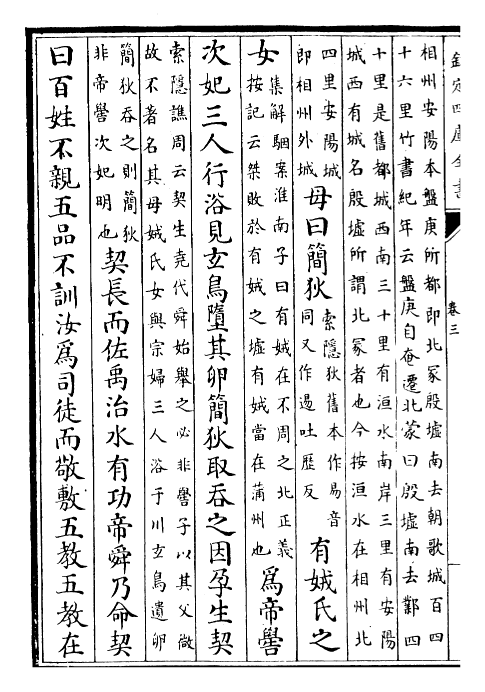 欽定四庫全書
卷三
相州安陽本盤庚所都即北冢殷墟南去朝歌城百四
十六里竹書紀年云盤庚自奄遷北蒙曰殷墟南去鄴四
十里是舊都城西南三十里有洹水南岸三里有安陽
城西有城名殷墟所謂北冢者也今按洹水在相州北
四里安陽城
即相州外城
母曰簡狄
索隱狄舊本作易音
同又作逷吐歷反
有娀氏之
女
集解駰案淮南子曰有娀在不周之北正義
按記云桀敗於有娀之墟有娀當在蒲州也
為帝嚳
次妃三人行浴見玄鳥墮其卵簡狄取吞之因孕生契
索隱譙周云契生堯代舜始舉之必非嚳子以其父微
故不著名其母娀氏女與宗婦三人浴于川玄鳥遺卵
簡狄吞之則簡狄
非帝嚳次妃明也
契長而佐禹治水有功帝舜乃命契
曰百姓不親五品不訓汝為司徒而敬敷五教五教在